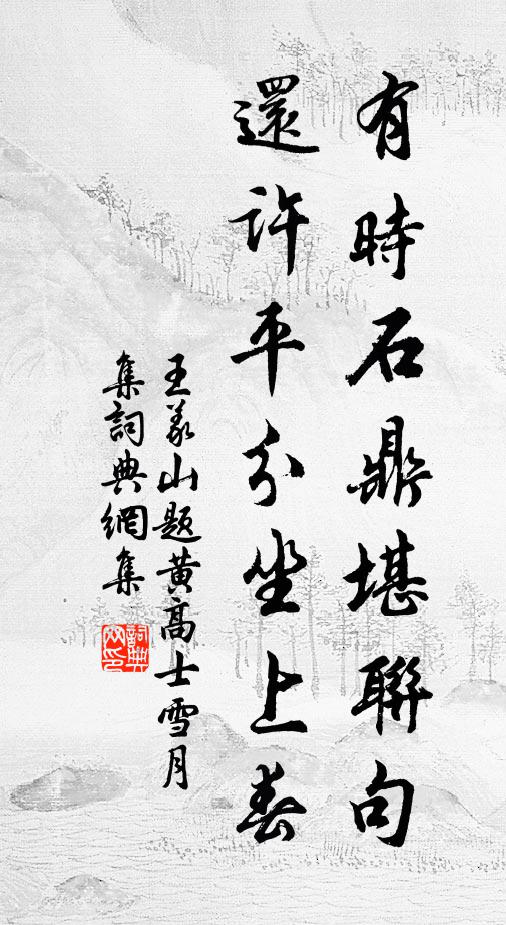 有時石鼎堪聯句
還許平分坐上春
王義山题黄高士雪月
集詞典網集
詞典網印